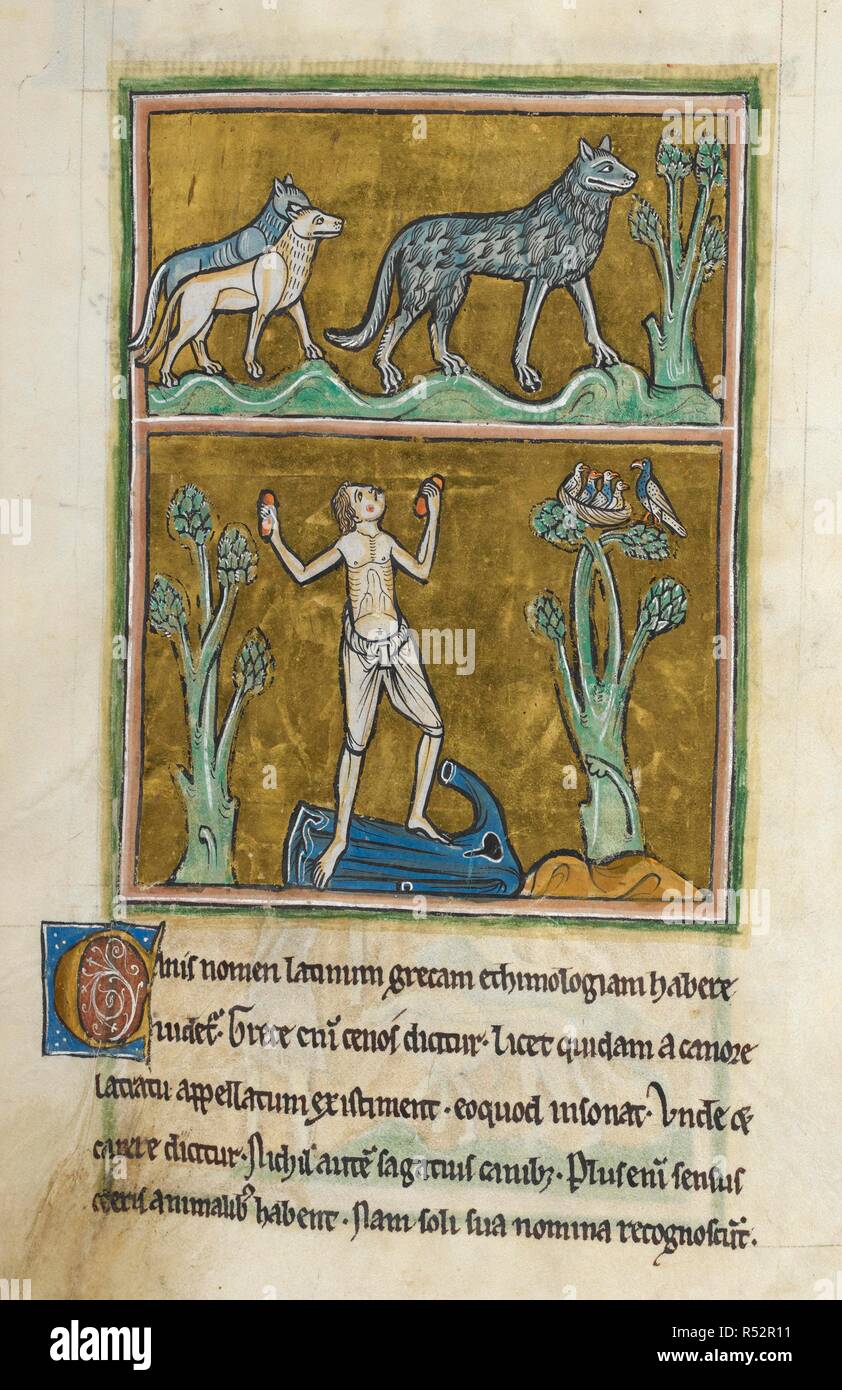 alamy
Canis nomen latinum grecam ethimologiam habere
uidet̄. Grece eni cenos dicitur. licet quidam a canore
latratu appellatum existiment. eo quod insonat. Vnde &
canere dicitur. Nichil aute sagacius canib;. Plus eni sensus
ceteris animalib; habent. Nam soli sua nomina recognoscut̄.
alamy
Image ID: R52R11
www.alamy.com